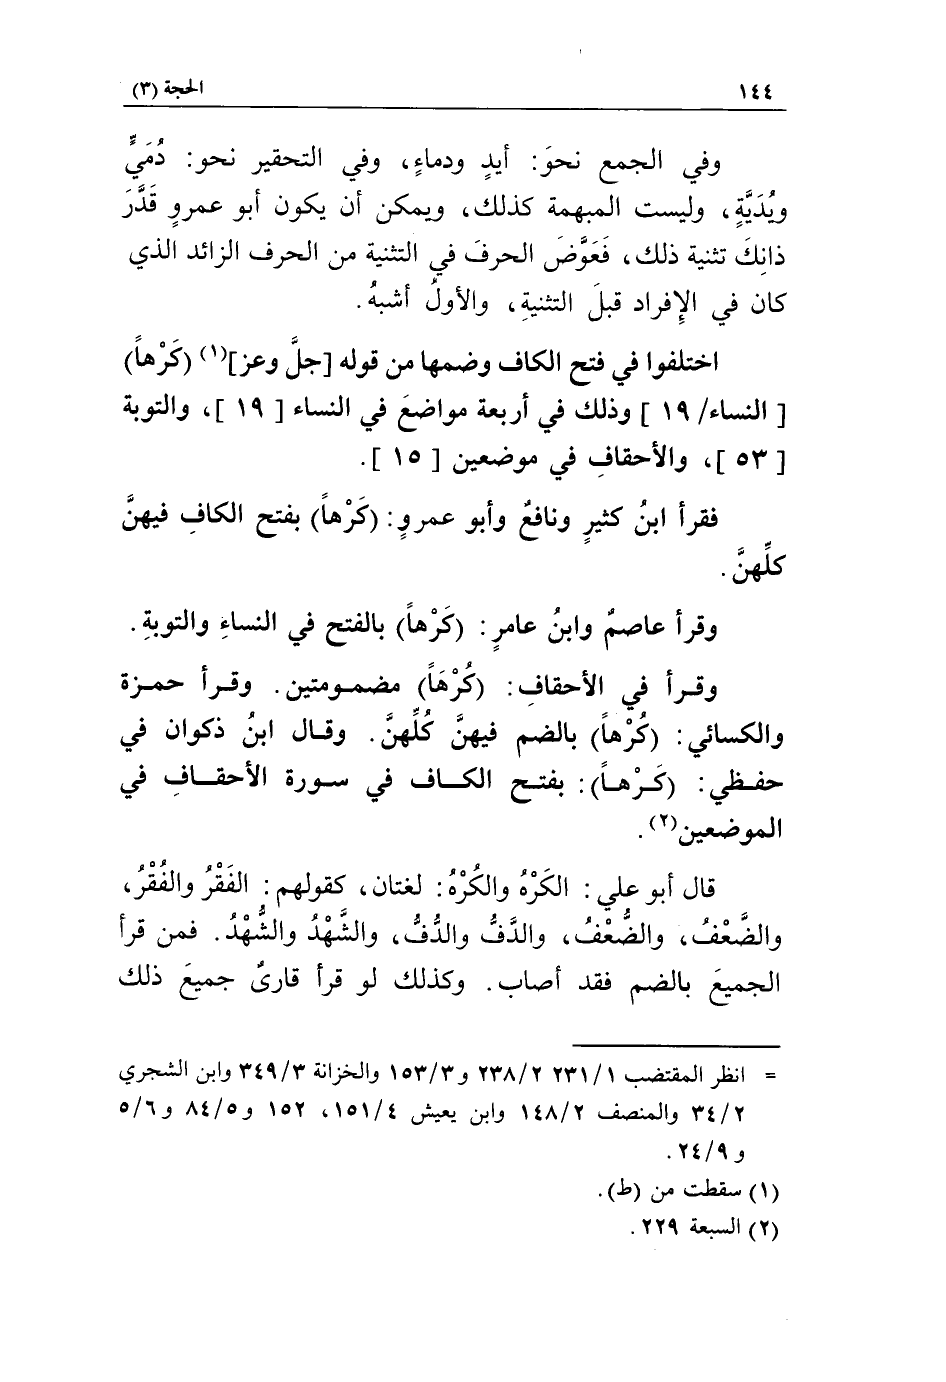 ١٤٤ الحجة (٣)
وفي الجمع نحوَ: أيدٍ ودماءٍ، وفي التحقير نحو: دُمَيٍّ
ويُدَيَّةٍ، وليست المبهمة كذلك، ويمكن أن يكون أبو عمروٍ قَدَّرَ
ذانِكَ تثنية ذلك، فَعَوَّضَ الحرفَ في التثنية من الحرف الزائد الذي
كان في الإفراد قبلَ التثنيةِ، والأولُ أشبهُ.
اختلفوا في فتح الكاف وضمها من قوله [جلَّ وعز](١) (كَرْهاً)
[النساء/ ١٩] وذلك في أربعة مواضعَ في النساء [١٩]، والتوبة
[٥٣]، والأحقافِ في موضعين [١٥].
فقرأ ابنُ كثيرٍ ونافعٌ وأبو عمروٍ: (كَرْهاً) بفتح الكافِ فيهنَّ
كلِّهنَّ.
وقرأ عاصمٌ وابنُ عامرٍ: (كَرْهاً) بالفتح في النساءِ والتوبةِ.
وقرأ في الأحقافِ: (كُرْهَاً) مضمومتين. وقرأ حمزة
والكسائي: (كُرْهاً) بالضم فيهنَّ كُلِّهنَّ. وقال ابنُ ذكوان في
حفظي: (كَرْهاً): بفتح الكاف في سورة الأحقافِ في
الموضعين(٢).
قال أبو علي: الكَرْهُ والكُرْهُ: لغتان، كقولهم: الفَقْرُ والفُقْرُ،
والضَّعْفُ، والضُّعْفُ، والدَّفُّ والدُّفُّ، والشَّهْدُ والشُّهْدُ. فمن قرأ
الجميعَ بالضم فقد أصاب. وكذلك لو قرأ قارئٌ جميعَ ذلك
= انظر المقتضب ٢٣١/١ ٢٣٨/٢ و١٥٣/٣ والخزانة ٣٤٩/٣ وابن الشجري
٣٤/٢ والمنصف ١٤٨/٢ وابن يعيش ١٥١/٤، ١٥٢ و٨٤/٥ و٥/٦
و ٢٤/٩.
(١) سقطت من (ط).
(٢) السبعة ٢٢٩.